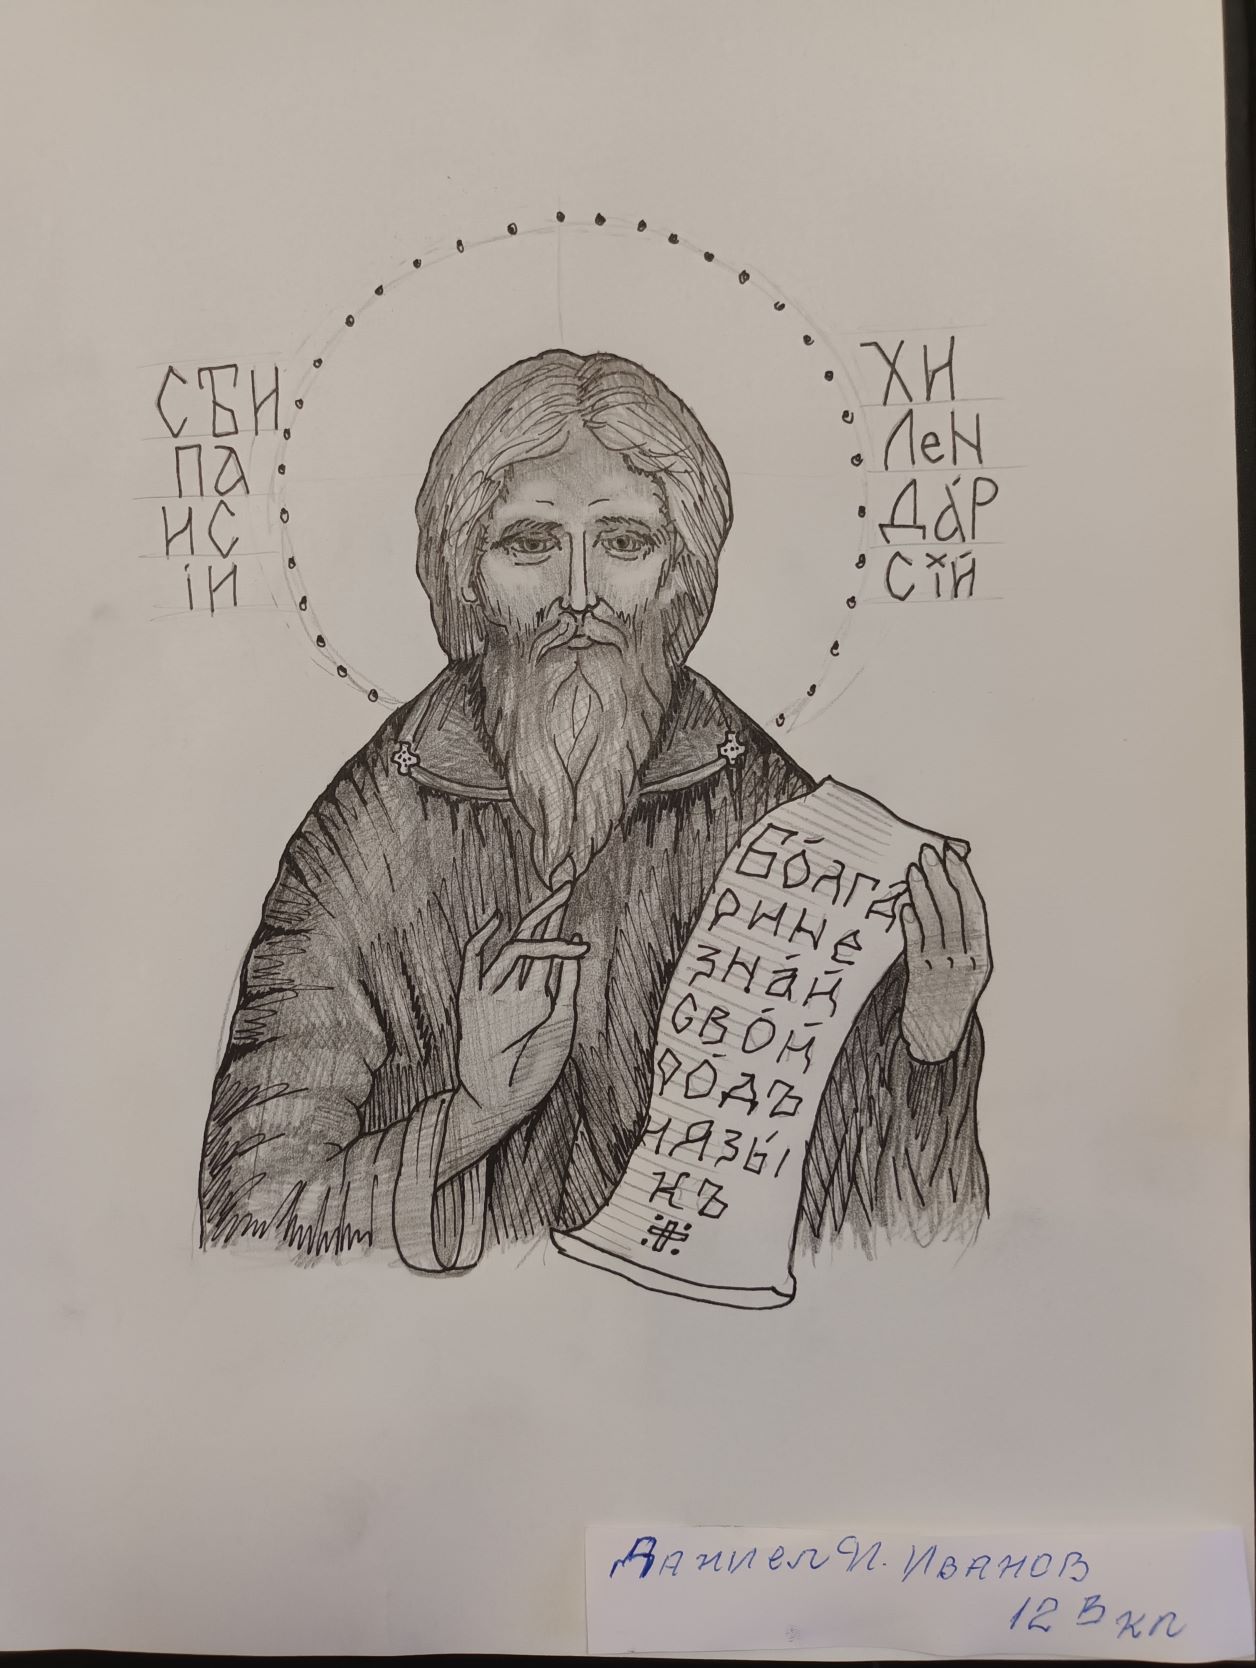 СЂИ
ПА
ИС
ІИ
ХИ
ЛеН
ДА́Р
СЇЙ
БО́ЛГА́
РИНЕ
ЗНА́Й
СВО́Й
РО́ДЪ
И ЯЗЫ́
КЪ
Даниел И. Иванов
12 В кл